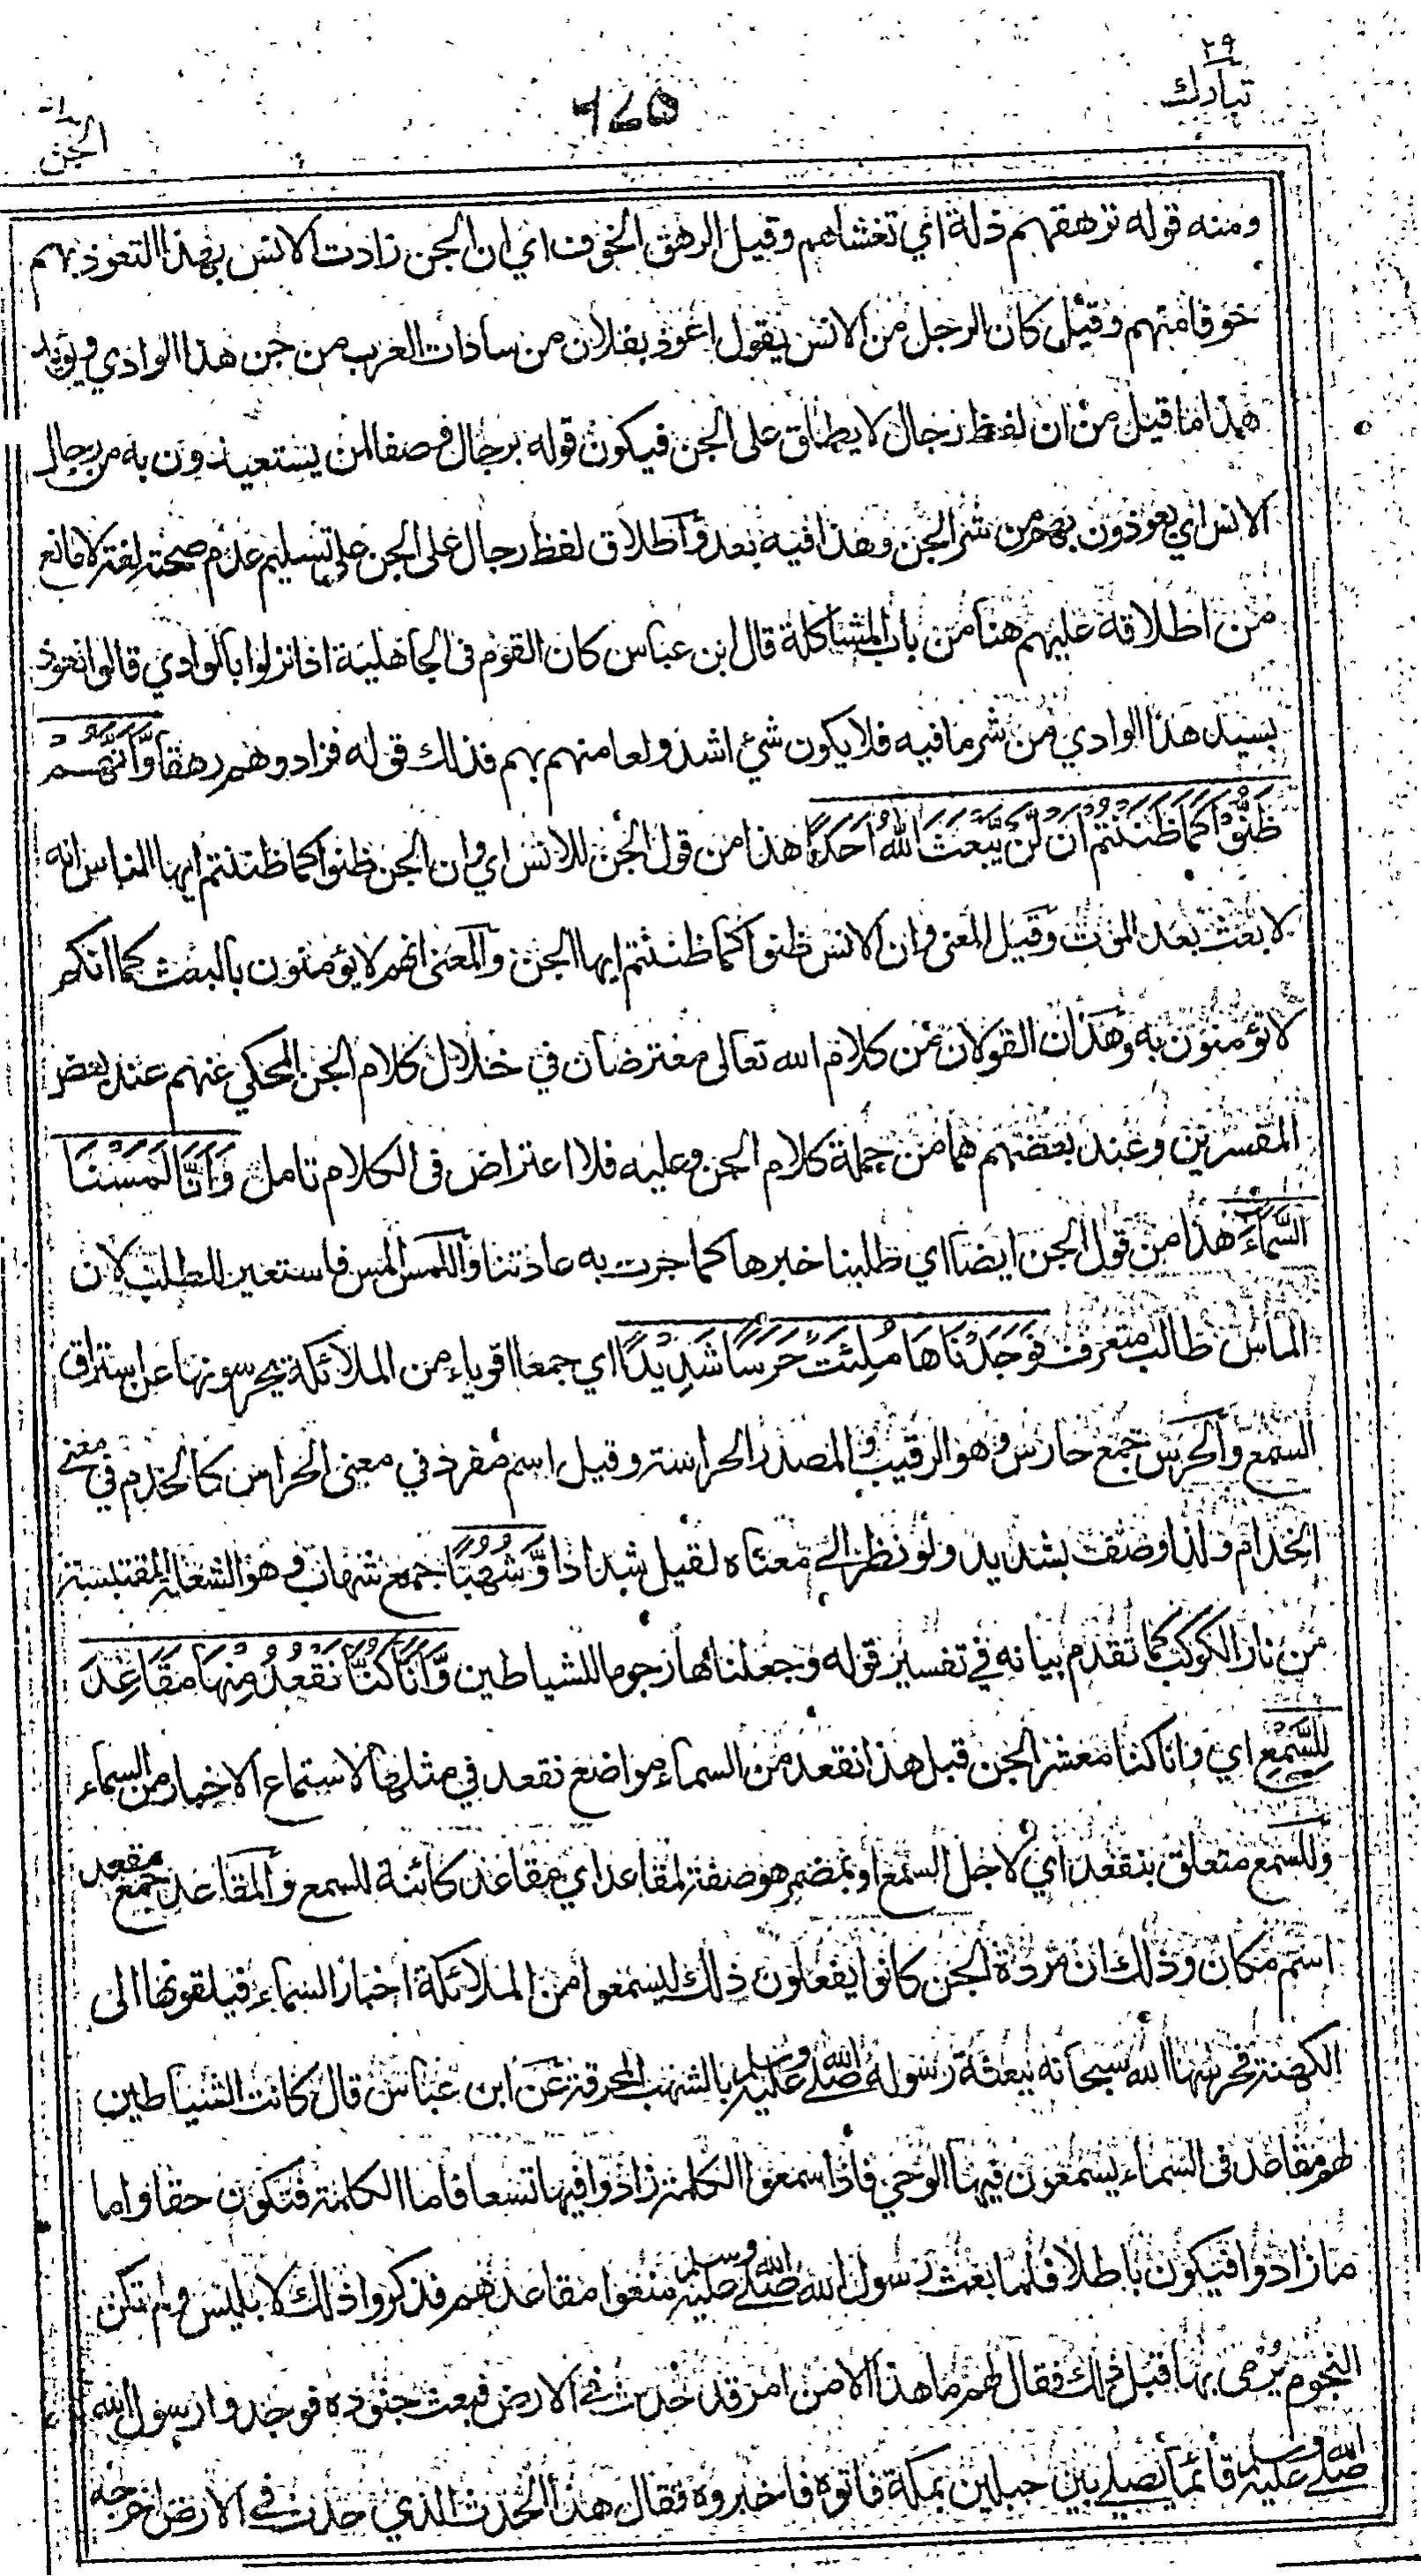 ٢٩
تبارك
٦٤٥
الجن
ومنه قوله ترهقهم ذلة اي تغشاهم وقيل الرهق الخوف اي ان الجن زادت الانس بهذا التعوذ بهم
خوفا منهم وقيل كان الرجل من الانس يقول اعوذ بفلان من سادات العرب من جن هذا الوادي ويؤيد
هذا ما قيل من ان لفظ رجال لا يطلق على الجن فيكون قوله برجال وصفا لمن يستعيذون به من رجال
الانس اي يعوذون بهم من شر الجن وهذا فيه بعد واطلاق لفظ رجال على الجن على تسليم عدم صحته لغة لا مانع
من اطلاقه عليهم هنا من باب المشاكلة قال ابن عباس كان القوم في الجاهلية اذا نزلوا بالوادي قالوا نعوذ
بسيد هذا الوادي من شر ما فيه فلا يكون شيء اشد ولعا منهم بهم فذلك قوله فزادوهم رهقا وَّاَنَّهُمْ
ظَنُّوْا كَمَا ظَنَنْتُمْ اَنْ لَّنْ يَّبْعَثَ اللهُ اَحَدًا هذا من قول الجن للانس اي وان الجن ظنوا كما ظننتم ايها الناس انه
لا بعث بعد الموت وقيل المعنى وان الانس ظنوا كما ظننتم ايها الجن والمعنى انهم لا يؤمنون بالبعث كما انكم
لا تؤمنون به وهذان القولان من كلام الله تعالى معترضان في خلال كلام الجن المحكي عنهم عند بعض
المفسرين وعند بعضهم هما من جملة كلام الجن وعليه فلا اعتراض في الكلام تامل وَاَنَّا لَمَسْنَا
السَّمَاءَ هذا من قول الجن ايضا اي طلبنا خبرها كما جرت به عادتنا واللمس المس فاستعير للطلب لان
الماس طالب متعرف فَوَجَدْنَاهَا مُلِئَتْ حَرَسًا شَدِيْدًا اي جمعا اقوياء من الملائكة يحرسونها عن استراق
السمع والحرس جمع حارس وهو الرقيب والمصدر الحراسة وقيل اسم مفرد في معنى الحراس كالخدم في معنى
الخدام ولذا وصف بشديد ولو نظر الى معناه لقيل شدادا وَّشُهُبًا جمع شهاب وهو الشعلة المقتبسة
من نار الكوكب كما تقدم بيانه في تفسير قوله وجعلناها رجوما للشياطين وَّاَنَّا كُنَّا نَقْعُدُ مِنْهَا مَقَاعِدَ
لِلسَّمْعِ اي وانا كنا معشر الجن قبل هذا نقعد من السماء مواضع نقعد في مثلها لاستماع الاخبار من السماء
وللسمع متعلق بنقعد اي لاجل السمع او بمضمر هو صفة لمقاعد اي مقاعد كائنة للسمع والمقاعد جمع مقعد
اسم مكان وذلك ان مردة الجن كانوا يفعلون ذلك ليسمعوا من الملائكة اخبار السماء فيلقونها الى
الكهنة فحرسها الله سبحانه ببعثة رسوله صلى الله عليه وسلم بالشهب المحرقة عن ابن عباس قال كانت الشياطين
لهم مقاعد في السماء يسمعون فيها الوحي فاذا سمعوا الكلمة زادوا فيها تسعا فاما الكلمة فتكون حقا واما
ما زادوا فيكون باطلا فلما بعث رسول الله صلى الله عليه وسلم منعوا مقاعدهم فذكروا ذلك لابليس ولم تكن
النجوم يرمى بها قبل ذلك فقال لهم ما هذا الا من امر قد حدث في الارض فبعث جنوده فوجدوا رسول الله
صلى الله عليه وسلم قائما يصلي بين جبلين بمكة فاتوه فاخبروه فقال هذا الحدث الذي حدث في الارض اخرجه